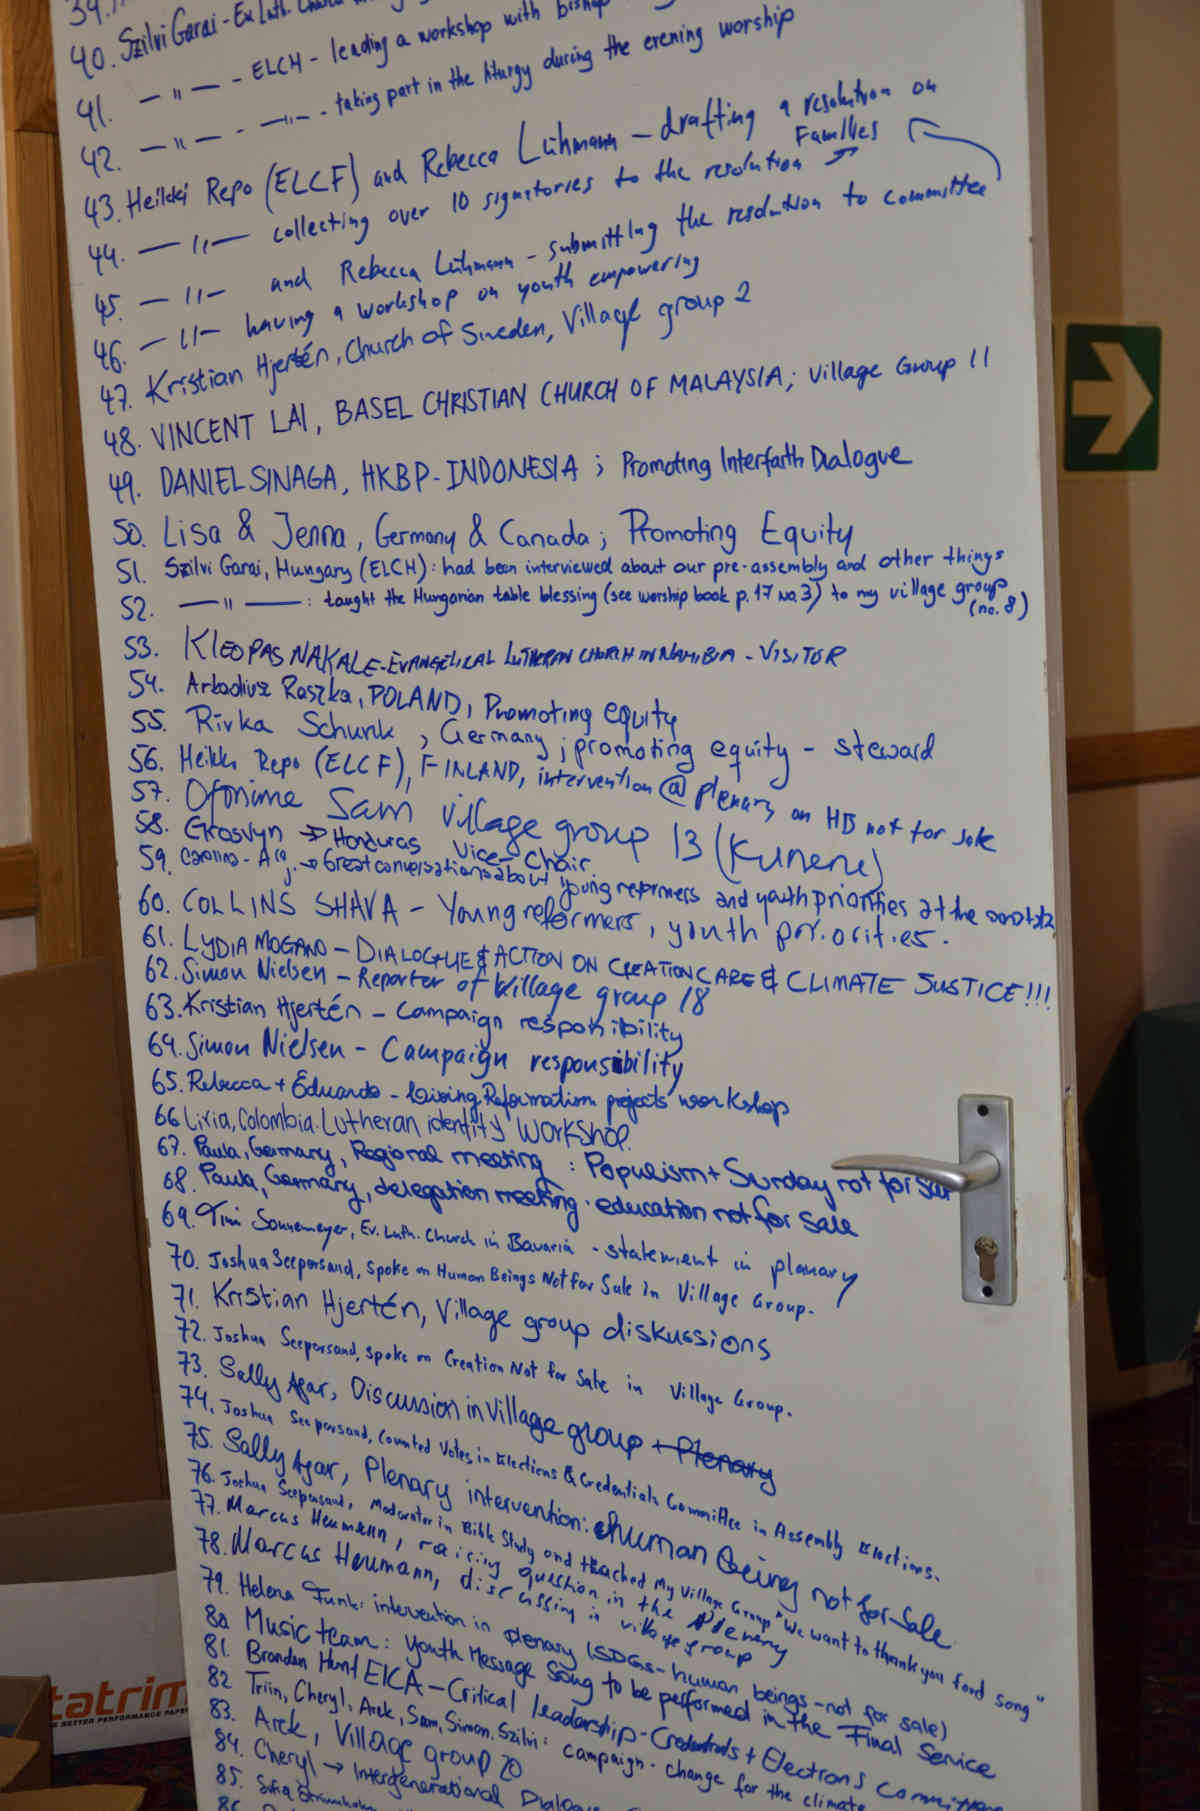 39.
40. Szilvi Garai - Ev. Luth. Church
41. — " — - ELCH - leading a workshop with bishop
42. — " — - — " — - taking part in the liturgy during the evening worship
43. Heikki Repo (ELCF) and Rebecca Lühmann - drafting a resolution on Families
44. — " — collecting over 10 signatories to the resolution
45. — " — and Rebecca Lühmann - submitting the resolution to committee
46. — " — having a workshop on youth empowering
47. Kristian Hjertén, Church of Sweden, Village group 2
48. VINCENT LAI, BASEL CHRISTIAN CHURCH OF MALAYSIA; Village Group 11
49. DANIEL SINAGA, HKBP-INDONESIA; Promoting Interfaith Dialogue
50. Lisa & Jenna, Germany & Canada; Promoting Equity
51. Szilvi Garai, Hungary (ELCH): had been interviewed about our pre-assembly and other things
52. — " — : taught the Hungarian table blessing (see worship book p. 17 no. 3) to my village group (no. 8)
53. KLEOPAS NAKALE - EVANGELICAL LUTHERAN CHURCH IN NAMIBIA - VISITOR
54. Arkadiusz Raszka, POLAND, Promoting equity
55. Rivka Schunk, Germany; promoting equity - steward
56. Heikki Repo (ELCF), FINLAND, intervention @ plenary on HB not for sale
57. Ofonime Sam Village group 13 (Kunene)
58. Honduras Vice-Chair
59. Carolina - Arg. → Great conversations about young reformers and youth priorities at the
60. COLLINS SHAVA - Young reformers, youth priorities.
61. LYDIA MOGANO - DIALOGUE & ACTION ON CREATION CARE & CLIMATE JUSTICE!!!
62. Simon Nielsen - Reporter of Village group 18
63. Kristian Hjertén - campaign responibility
64. Simon Nielsen - Campaign responsibility
65. Rebecca + Eduardo - Living Reformation projects workshop
66 Liria, Colombia. Lutheran identity workshop.
67. Paula, Germany, Regional meeting: Populism + Sunday not for sale
68. Paula, Germany, delegation meeting. education not for sale
69. Tim Sonnemeyer, Ev. Luth. Church in Bavaria - statement in plenary
70. Joshua Seepersand, spoke on Human Beings Not For Sale in Village Group.
71. Kristian Hjertén, Village group diskussions
72. Joshua Seepersand, spoke on Creation Not for Sale in Village Group.
73. Sally Agar, Discussion in village group + Plenary
74. Joshua Seepersand, Counted Votes in Elections & Credentials Committee in Assembly Elections.
75. Sally Agar, Plenary intervention: human being not for sale
76. Joshua Seepersand, Moderator in Bible Study and teached My Village Group "We want to thank you ford song"
77. Marcus Heumann, raising question in the Plenary
78. Marcus Heumann, discussing in village group
79. Helena Funk: intervention in plenary (SDGs - human beings - not for sale)
80 Music team: Youth Message Song to be performed in the Final Service
81. Brandon Hunt ELCA - Critical leadership - Credentials + Elections Committee
82 Triin, Cheryl, Arek, Sam, Simon, Szilvi: campaign - change for the climate
83. Arek, Village group 20
84. Cheryl → Intergenerational
85.
86.
tatrim
BETTER PERFORMANCE PAPER